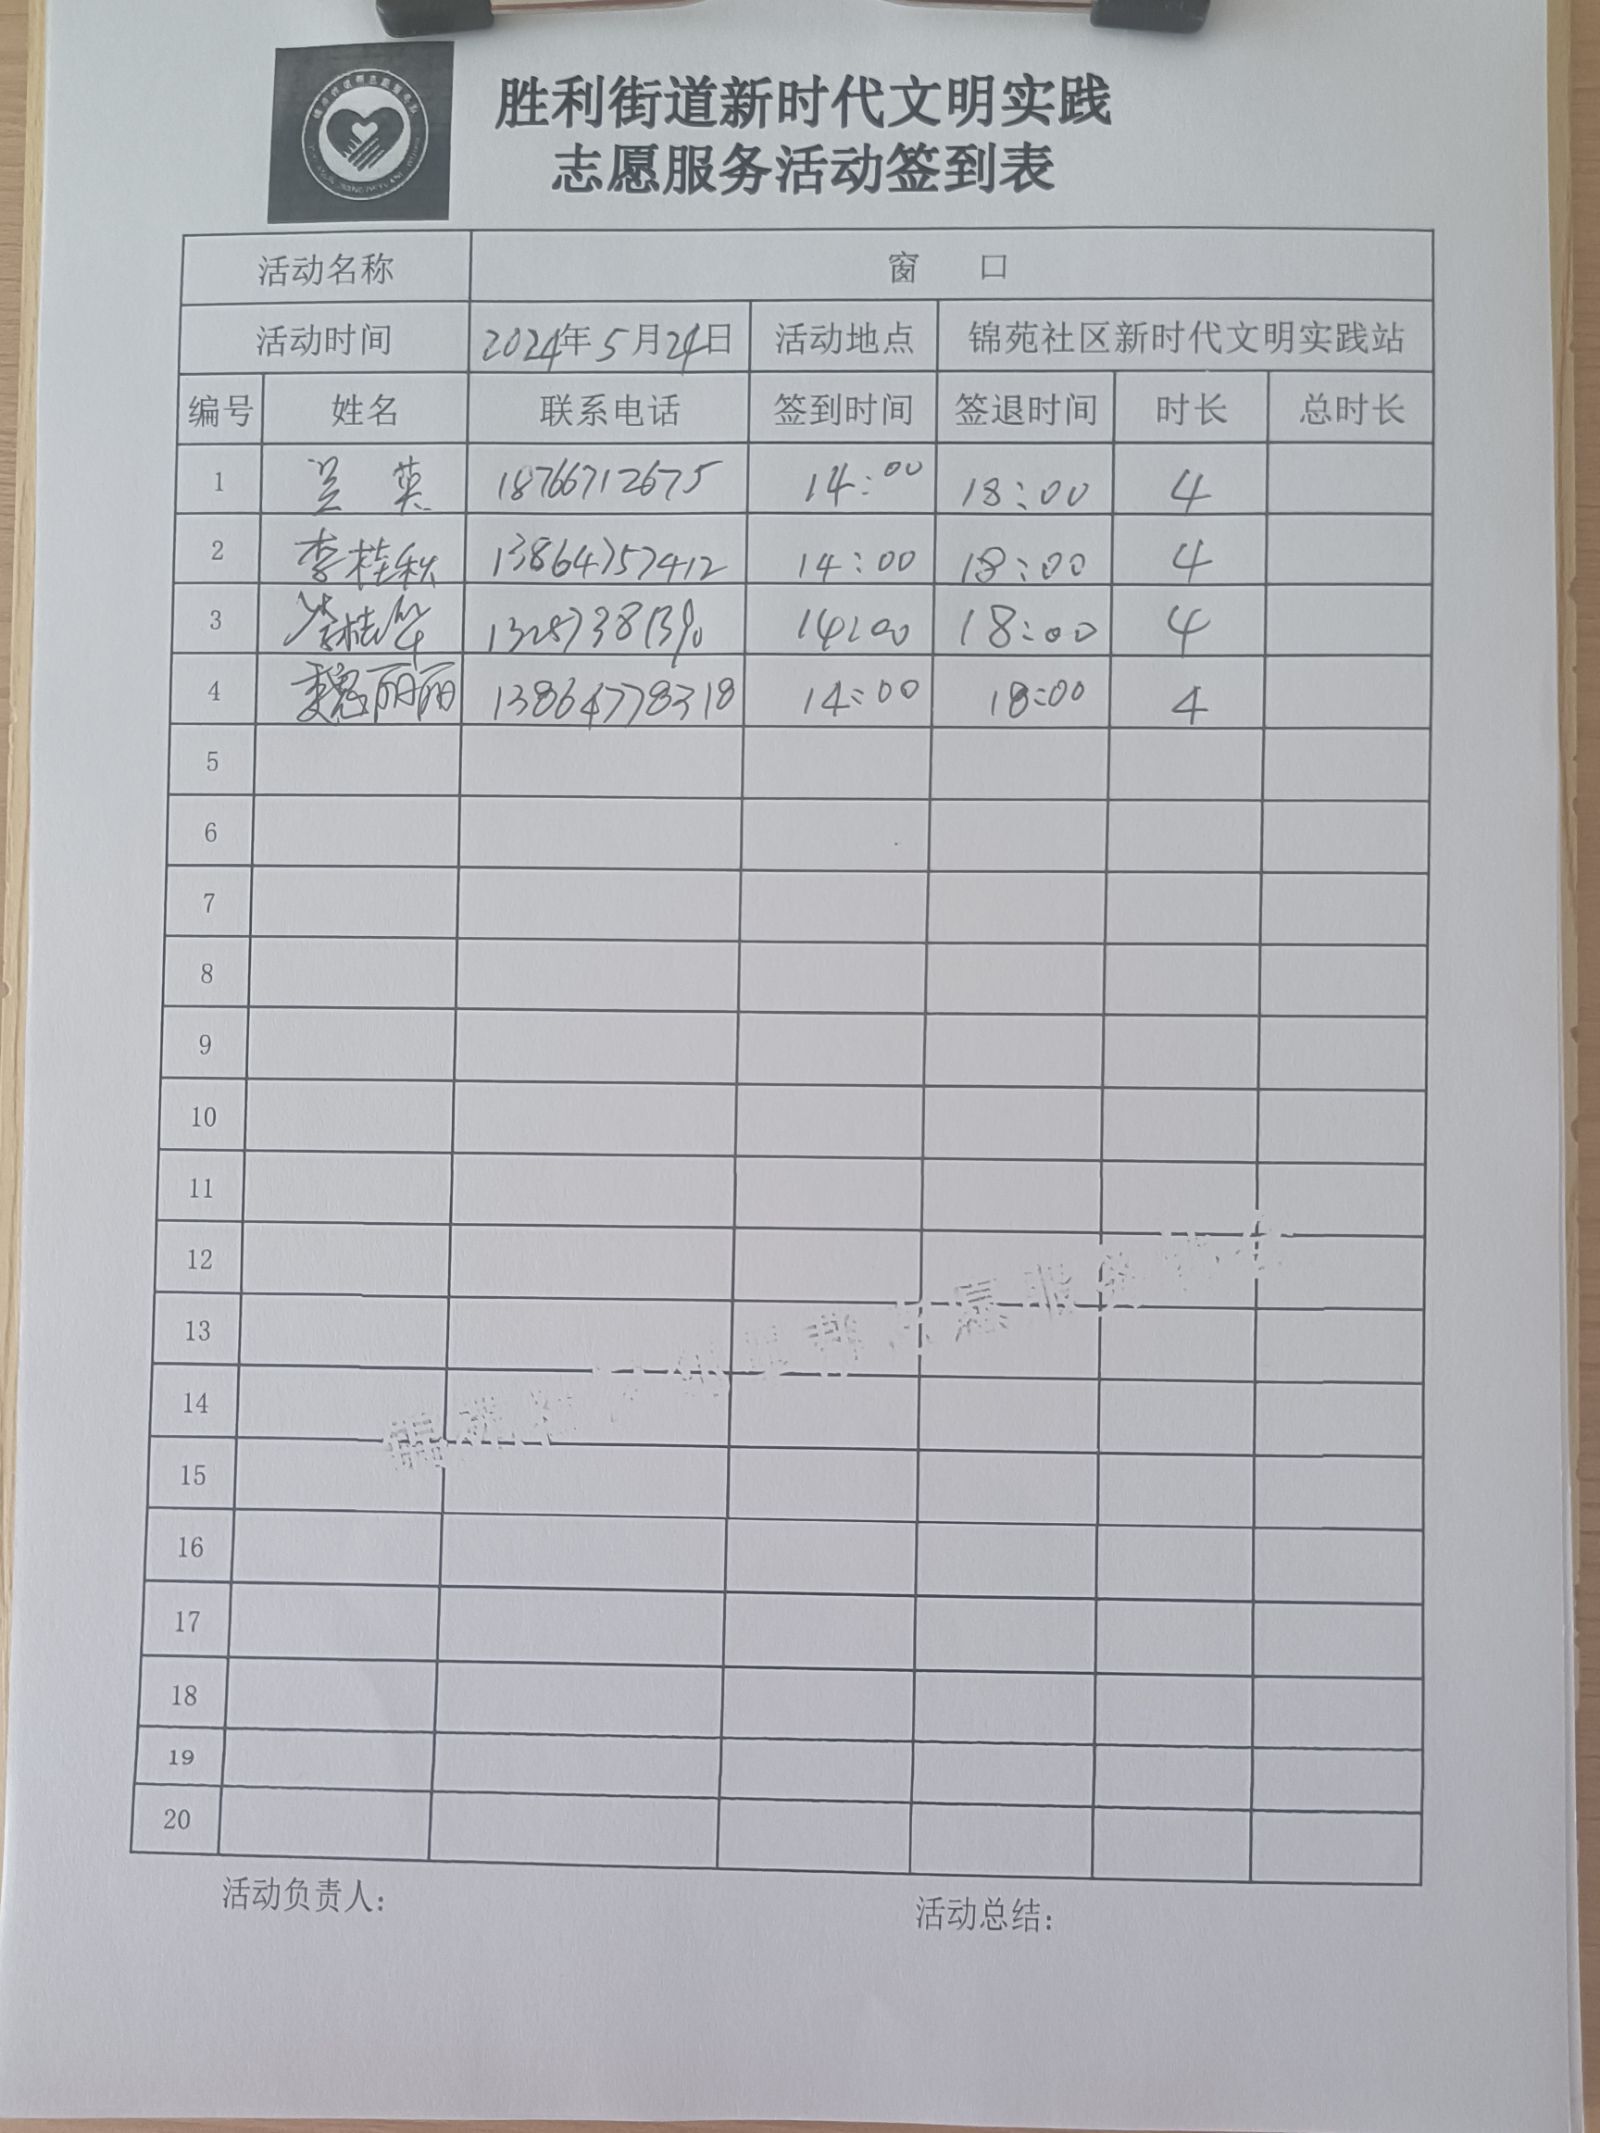 胜利街道新时代文明实践
志愿服务活动签到表
活动名称 窗 口
活动时间 2024年5月24日 活动地点 锦苑社区新时代文明实践站
编号 姓名 联系电话 签到时间 签退时间 时长 总时长
1 兰 英 18766712675 14:00 18:00 4
2 李桂秋 13864757412 14:00 18:00 4
3 14:00 18:00 4
4 魏丽丽 13864778318 14:00 18:00 4
5
6
7
8
9
10
11
12
13
14
15
16
17
18
19
20
活动负责人: 活动总结: